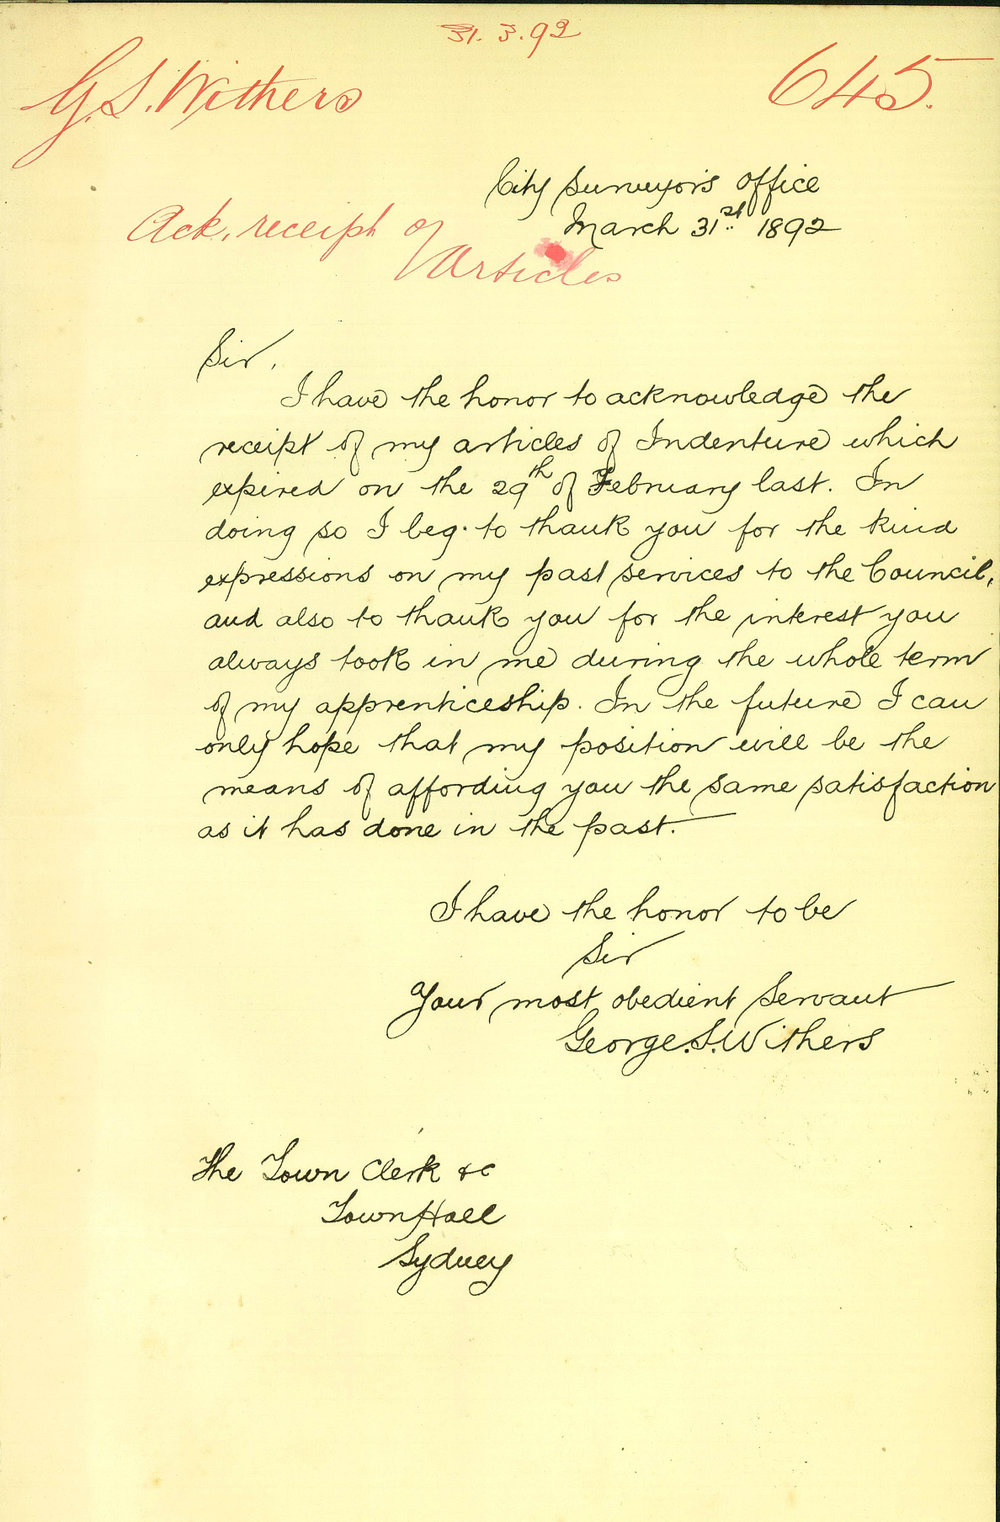 31.3.92
G.S. Withers
645.
City Surveyor's Office
March 31st 1892
Ack. receipt of
Articles
Sir,
I have the honor to acknowledge the
receipt of my articles of Indenture which
expired on the 29th of February last. In
doing so I beg to thank you for the kind
expressions on my past services to the Council,
and also to thank you for the interest you
always took in me during the whole term
of my apprenticeship. In the future I can
only hope that my position will be the
means of affording you the same satisfaction
as it has done in the past.
I have the honor to be
Sir
Your most obedient Servant
George. S. Withers
The Town Clerk &c
Town Hall
Sydney